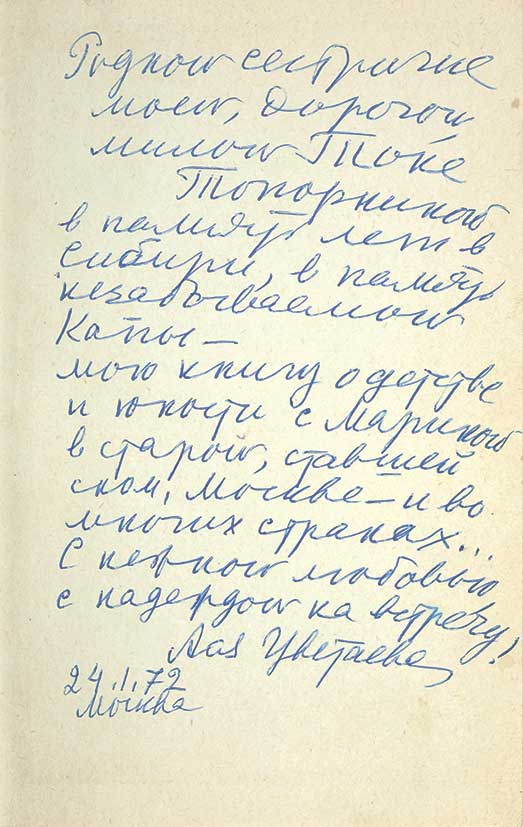 Родной сестричке
моей, дорогой,
милой Тоне
Топорниной
в память лет в
Сибири, в память
незабываемой
Капы —
мою книгу о детстве
и юности с Мариной
в старой, ставшей
сном, Москве — и во
многих странах...
С нежной любовью
с надеждой на встречу!
Ася Цветаева
24.I.72
Москва